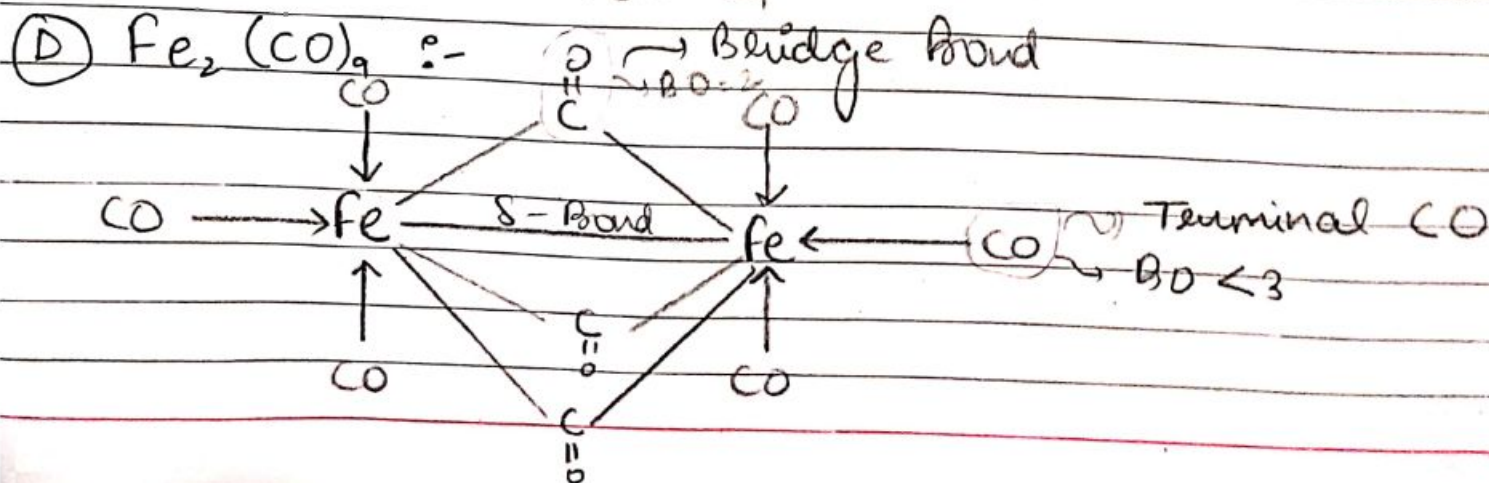 D Fe₂ (CO)₉ :-
O → Bridge Bond
|| → BO = 2
CO C CO
CO → Fe δ-Bond Fe ← CO Terminal CO
BO < 3
C
||
O
CO CO
C
||
O